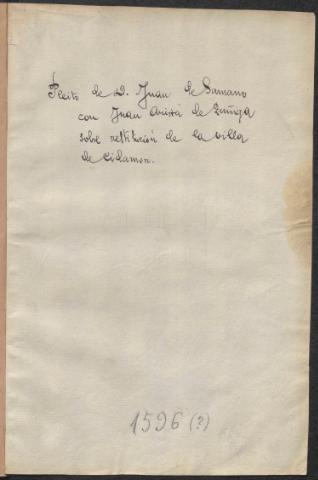 Pleito de D. Juan de Samano
con Juan de Zúñiga
sobre restitución de la villa
de Cidamon.
1596 (?)